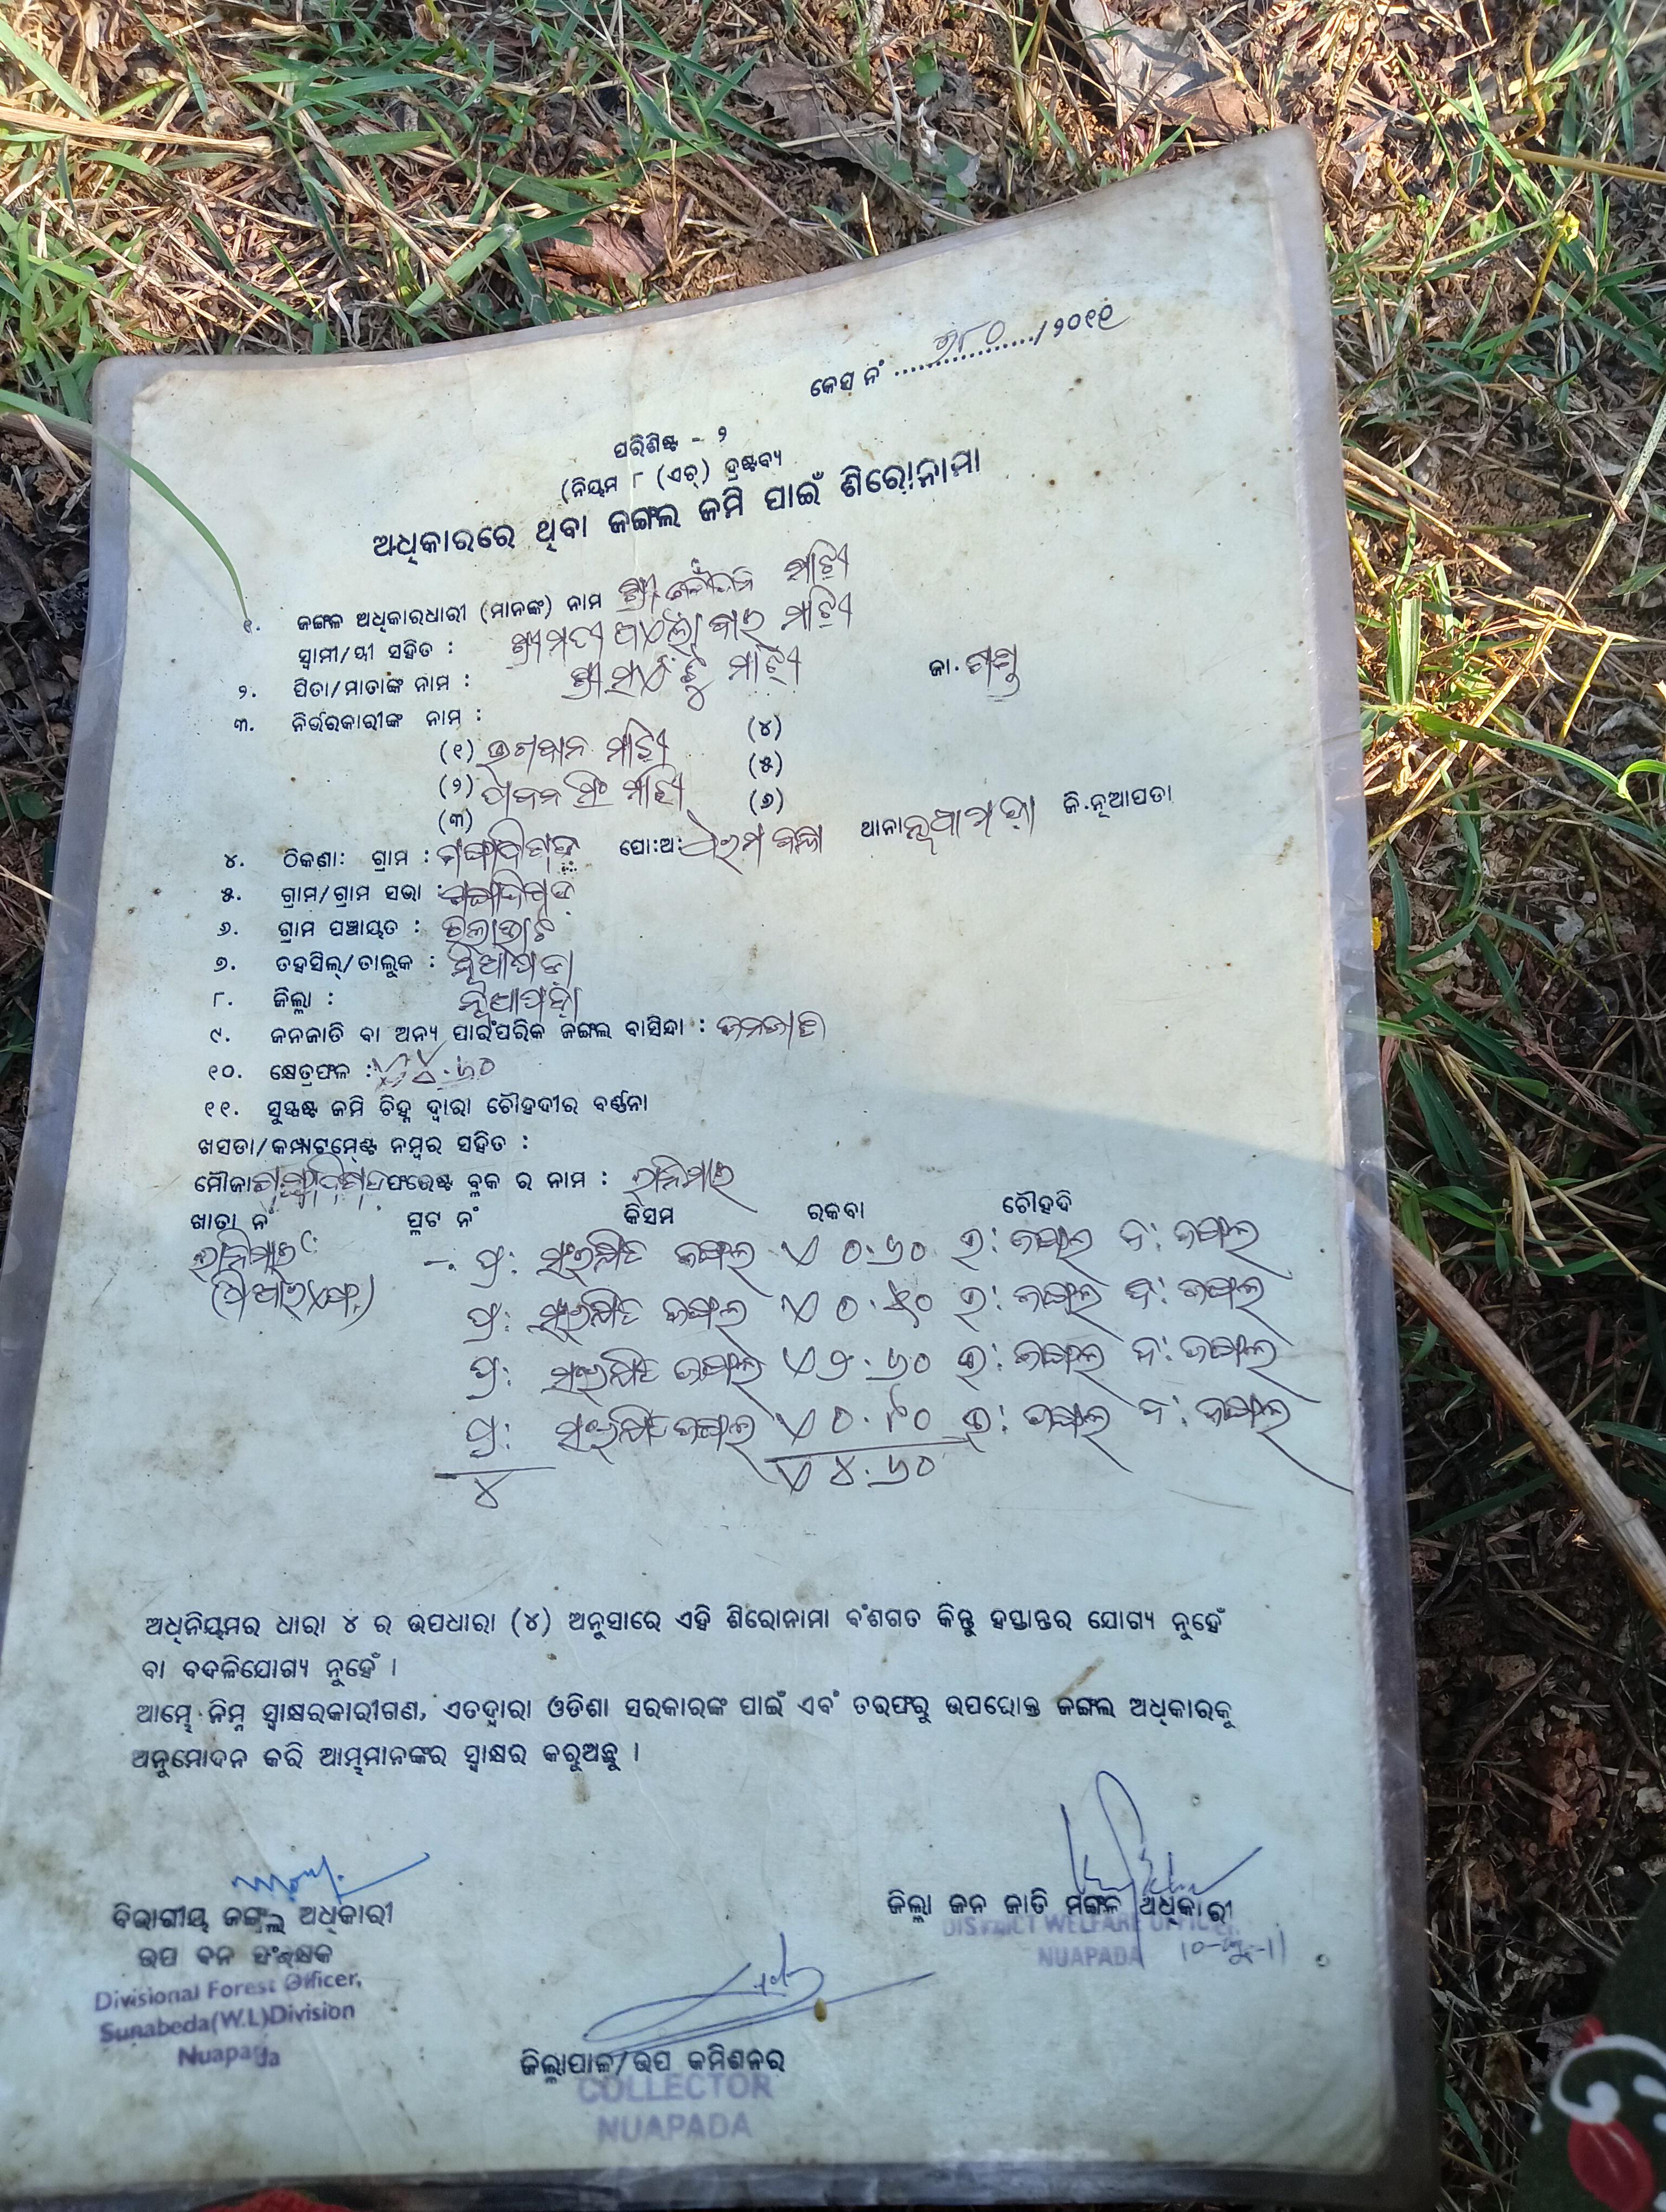 କେସ୍ ନଂ ................../୨୦୧୧
ପରିଶିଷ୍ଟ - ୨
(ନିୟମ ୮ (ଏଚ୍) ଦ୍ରଷ୍ଟବ୍ୟ
ଅଧିକାରରେ ଥିବା ଜଙ୍ଗଲ ଜମି ପାଇଁ ଶିରୋନାମା
୧. ଜଙ୍ଗଳ ଅଧିକାରଧାରୀ (ମାନଙ୍କ) ନାମ ଶ୍ରୀ ମାଝି
ସ୍ୱାମୀ/ସ୍ତ୍ରୀ ସହିତ : ଶ୍ରୀମତୀ ମାଝି
୨. ପିତା/ମାତାଙ୍କ ନାମ : ଶ୍ରୀ ମାଝି ଜା. ଗଣ୍ଡ
୩. ନିର୍ଭରକାରୀଙ୍କ ନାମ :
(୧) ଭଗବାନ ମାଝି (୪)
(୨) ମାଝି (୫)
(୩) (୬)
୪. ଠିକଣା: ଗ୍ରାମ : ପୋ:ଅ: ଥାନା ନୂଆପଡ଼ା ଜି.ନୂଆପଡା
୫. ଗ୍ରାମ/ଗ୍ରାମ ସଭା :
୬. ଗ୍ରାମ ପଞ୍ଚାୟତ :
୭. ତହସିଲ୍/ତାଲୁକ : ନୂଆପଡ଼ା
୮. ଜିଲ୍ଲା : ନୂଆପଡ଼ା
୯. ଜନଜାତି ବା ଅନ୍ୟ ପାରଂପରିକ ଜଙ୍ଗଲ ବାସିନ୍ଦା : ଜନଜାତି
୧୦. କ୍ଷେତ୍ରଫଳ : ଏ ୪.୬୦
୧୧. ସୁସ୍ପଷ୍ଟ ଜମି ଚିହ୍ନ ଦ୍ୱାରା ଚୌହଦୀର ବର୍ଣ୍ଣନା
ଖସଡା/କମ୍ପାଟମେଣ୍ଟ ନମ୍ବର ସହିତ :
ମୌଜା ଫରେଷ୍ଟ ବ୍ଳକ ର ନାମ : ରାନିମାଇ
ଖାତା ନଂ ପ୍ଳଟ ନଂ କିସମ ରକବା ଚୌହଦି
ରାନିମାଇ – ପ୍ର: ସଂରକ୍ଷିତ ଜଙ୍ଗଲ ଏ ୦.୬୦ ଉ: ଜଙ୍ଗଲ ଦ: ଜଙ୍ଗଲ
(ପିଆରଏଫ୍)
ପ୍ର: ସଂରକ୍ଷିତ ଜଙ୍ଗଲ ଏ ଉ: ଜଙ୍ଗଲ ଦ: ଜଙ୍ଗଲ
ପ୍ର: ସଂରକ୍ଷିତ ଜଙ୍ଗଲ ଏ ୨.୬୦ ଉ: ଜଙ୍ଗଲ ଦ: ଜଙ୍ଗଲ
ପ୍ର: ସଂରକ୍ଷିତ ଜଙ୍ଗଲ ଏ ଉ: ଜଙ୍ଗଲ ଦ: ଜଙ୍ଗଲ
୪ ଏ ୪.୬୦
ଅଧିନିୟମର ଧାରା ୪ ର ଉପଧାରା (୪) ଅନୁସାରେ ଏହି ଶିରୋନାମା ବଂଶଗତ କିନ୍ତୁ ହସ୍ତାନ୍ତର ଯୋଗ୍ୟ ନୁହେଁ
ବା ବଦଳିଯୋଗ୍ୟ ନୁହେଁ ।
ଆମ୍ଭେ ନିମ୍ନ ସ୍ୱାକ୍ଷରକାରୀଗଣ, ଏତଦ୍ୱାରା ଓଡିଶା ସରକାରଙ୍କ ପାଇଁ ଏବଂ ତରଫରୁ ଉପରୋକ୍ତ ଜଙ୍ଗଲ ଅଧିକାରକୁ
ଅନୁମୋଦନ କରି ଆମ୍ଭମାନଙ୍କର ସ୍ୱାକ୍ଷର କରୁଅଛୁ ।
ବିଭାଗୀୟ ଜଙ୍ଗଲ ଅଧିକାରୀ
ଉପ ବନ ସଂରକ୍ଷକ
Divisional Forest Officer,
Sunabeda(W.L)Division
Nuapada
ଜିଲ୍ଲା ଜନ ଜାତି ମଙ୍ଗଳ ଅଧିକାରୀ
DISTRICT WELFARE OFFICER,
NUAPADA
ଜିଲ୍ଲାପାଳ/ଉପ କମିଶନର
COLLECTOR
NUAPADA